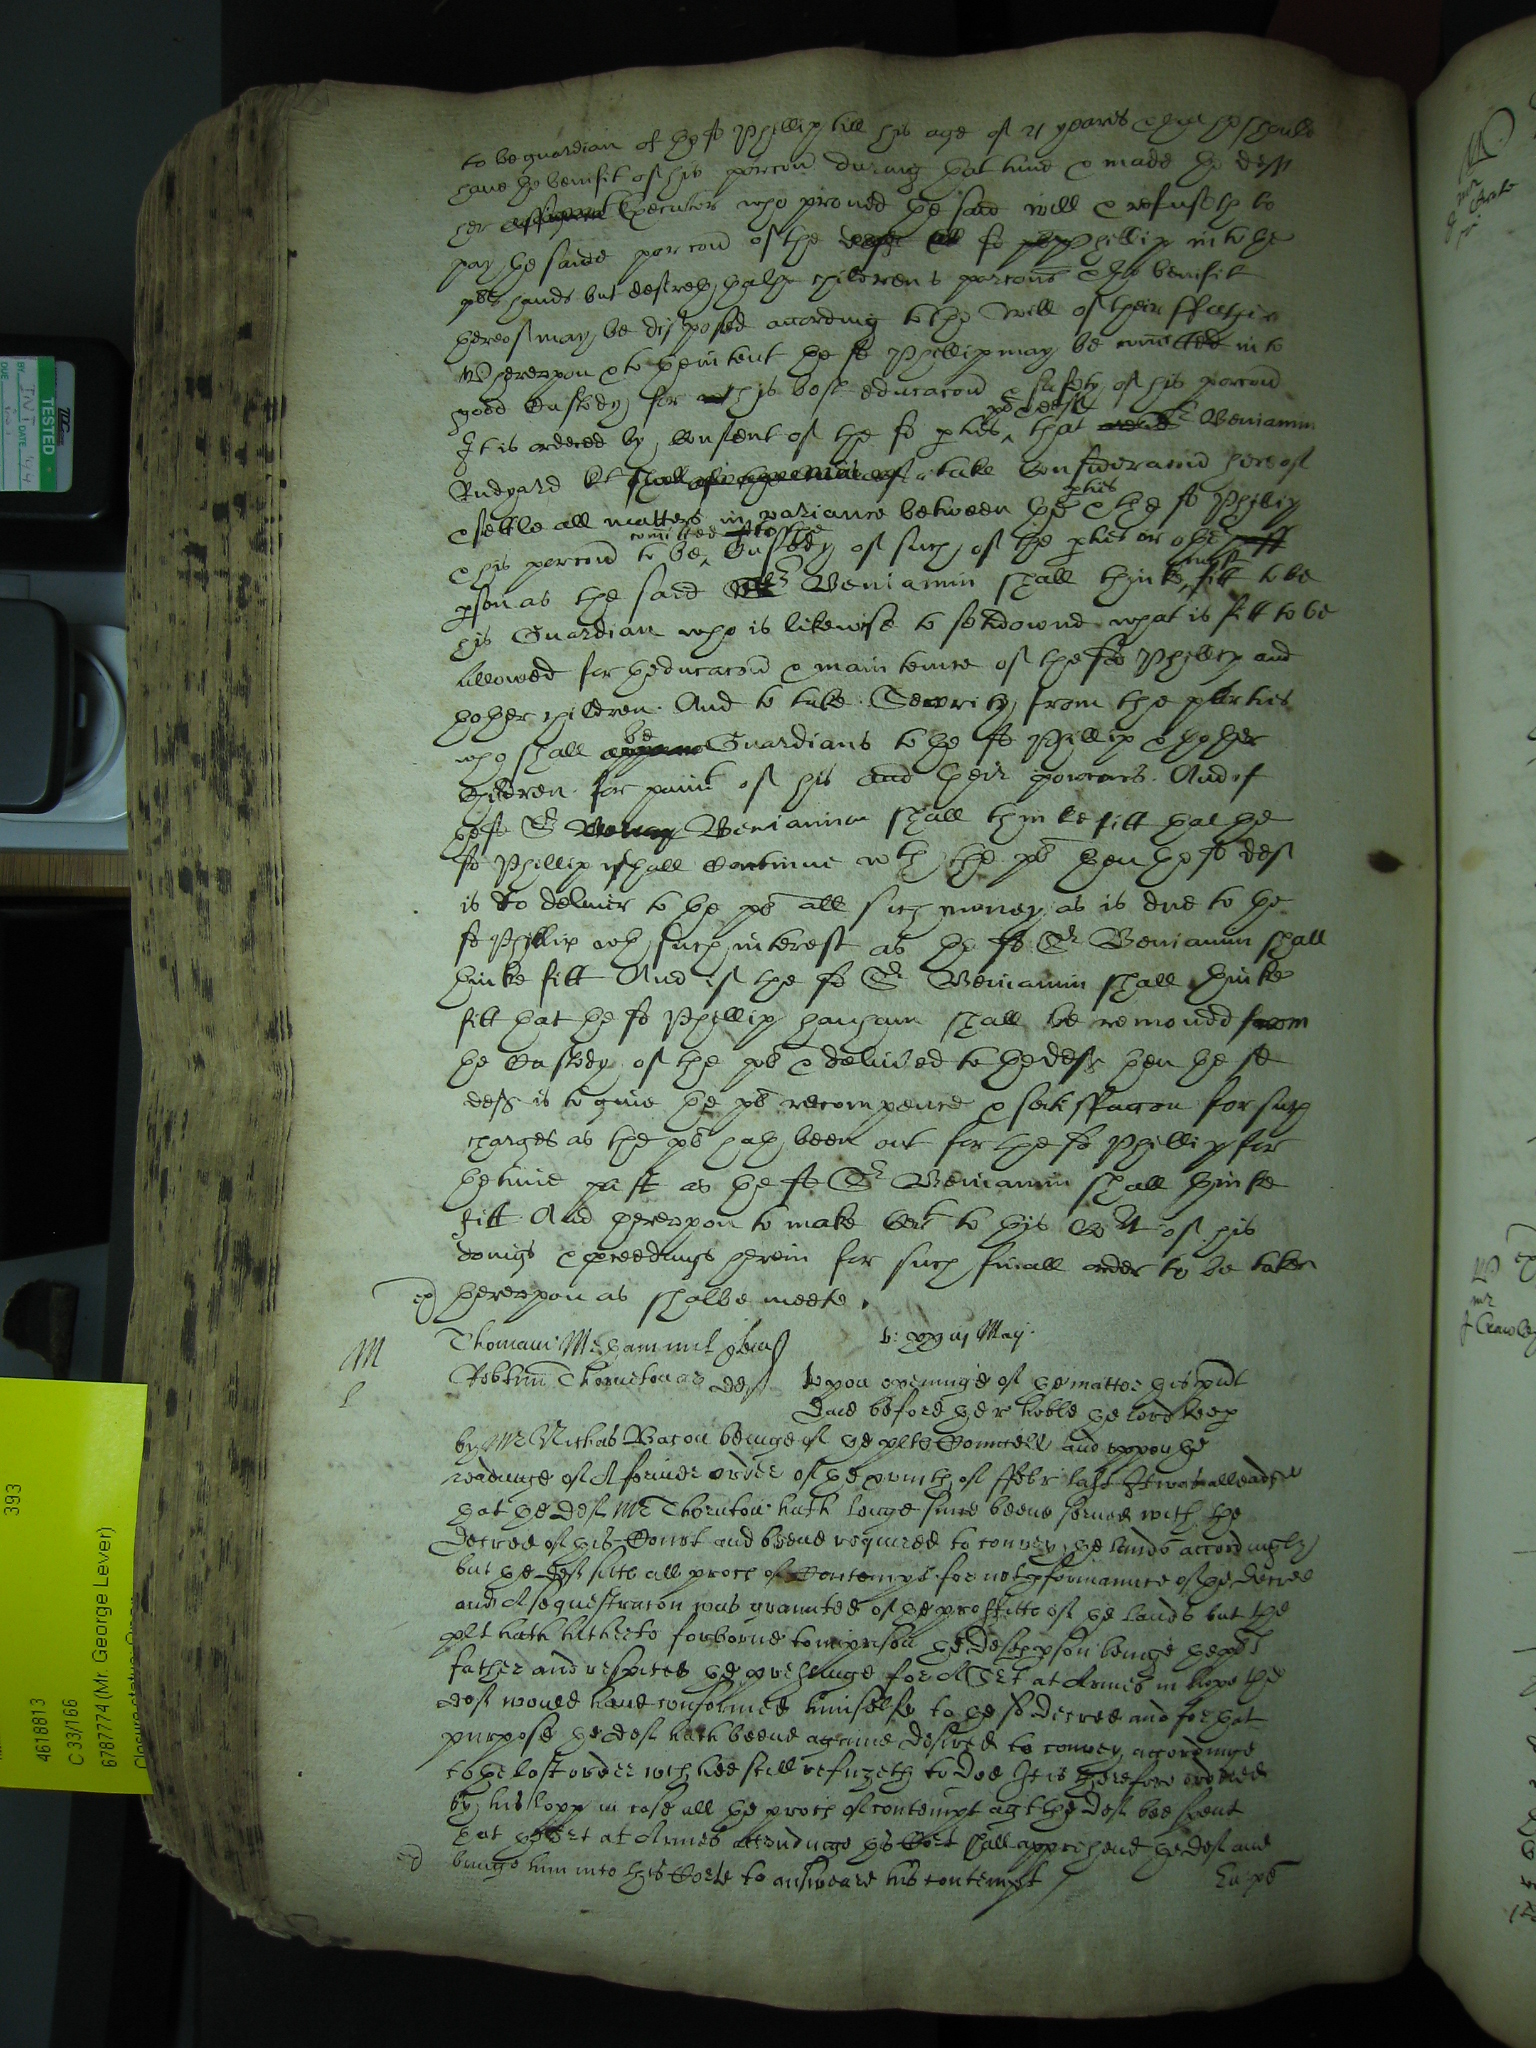 to be guardian of the sd Phillip till his age of 21 yeares & that he should
haue the benefit of his porcon during that time & made the deft
her Executor who proued the said will & refuseth to
pay the saide porcon of the sd Phillip into the
plts hands but desireth the children's porcons & the benifit
thereof may be disposed according to the will of their ffather
Wherevpon & to thentent the sd Phillip may be comitted into
good Custody for his best educacon & safety of his porcon
It is ordered by Consent of the sd pties that Sr Beniamin
Rudyard kt take Consideracon hereof
& settle all matters in variance between the pties & the sd Phillip
& his porcon to be comitted to the Custody of such of the pties or other
pson as the said Sr Beniamin shall thinke most fitt to be
his Guardian who is likewise to sett downe what is fitt to be
allowed for theducacon & maintenance of the sd Phillip and
thother children And to take Security from the parties
who shall be Guardians to the sd Phillip & thother
Children for paimt of his and their porcons. And if
the sd Sr Beniamin shall thinke fitt that the
sd Phillip shall Continue wth the plt then the sd deft
is to deliuer to the plt all such money as is due to the
sd Phillip wth such interest as the sd Sr Beniamin shall
thinke fitt And if the sd Sr Beniamin shall thinke
fitt that the sd Phillip shall be remoued from
the Custody of the plt & deliuered to the deft then the sd
deft is to giue the plt recompence & satisffaccon for such
charges as the plt hath been at for the sd Phillip for
the time past as the sd Sr Beniamin shall thinke
fitt And therevpon to make Cert to this Cort of his
doings & proceedings herein for such finall order to be taken
therevpon as shalbe meete.
M
Thomam plt
v: xxiij Maij
l
Thornton ar deft Vpon openinge of the matter this psent
Daie before the r: hoble the lord keep
by Mr Nichas Bacon beinge of the plts Councell and vppon the
readinge of A former order of the xvinth of ffebr last It was alleadged
that the deft Mr Thornton hath longe since beene serued with the
decree of this Court and beene required to convey the lands accordingly
but the deft sitts all proces of Contempt for not pformance of the decree
and A sequestracon was graunted of the proffitts of the lands but the
plt hath hitherto forborne to imprison the defts pson beinge the plts
father and respited the for A Sert at Armes in hope the
deft would haue conformed himselfe to the sd decree and for that
purpose the deft hath beene againe desired to convey accordinge
to the last order wch hee still refuzeth to doe It is therefore ordered
by his lopp in case all the proces of contempt agt the deft bee spent
that the Sert at Armes attendinge this Cort shall apprehend the deft and
bringe him into this Corte to answeare his contempt
4618813
393
C 33/166
6787774 (Mr. George Lever)
TESTED